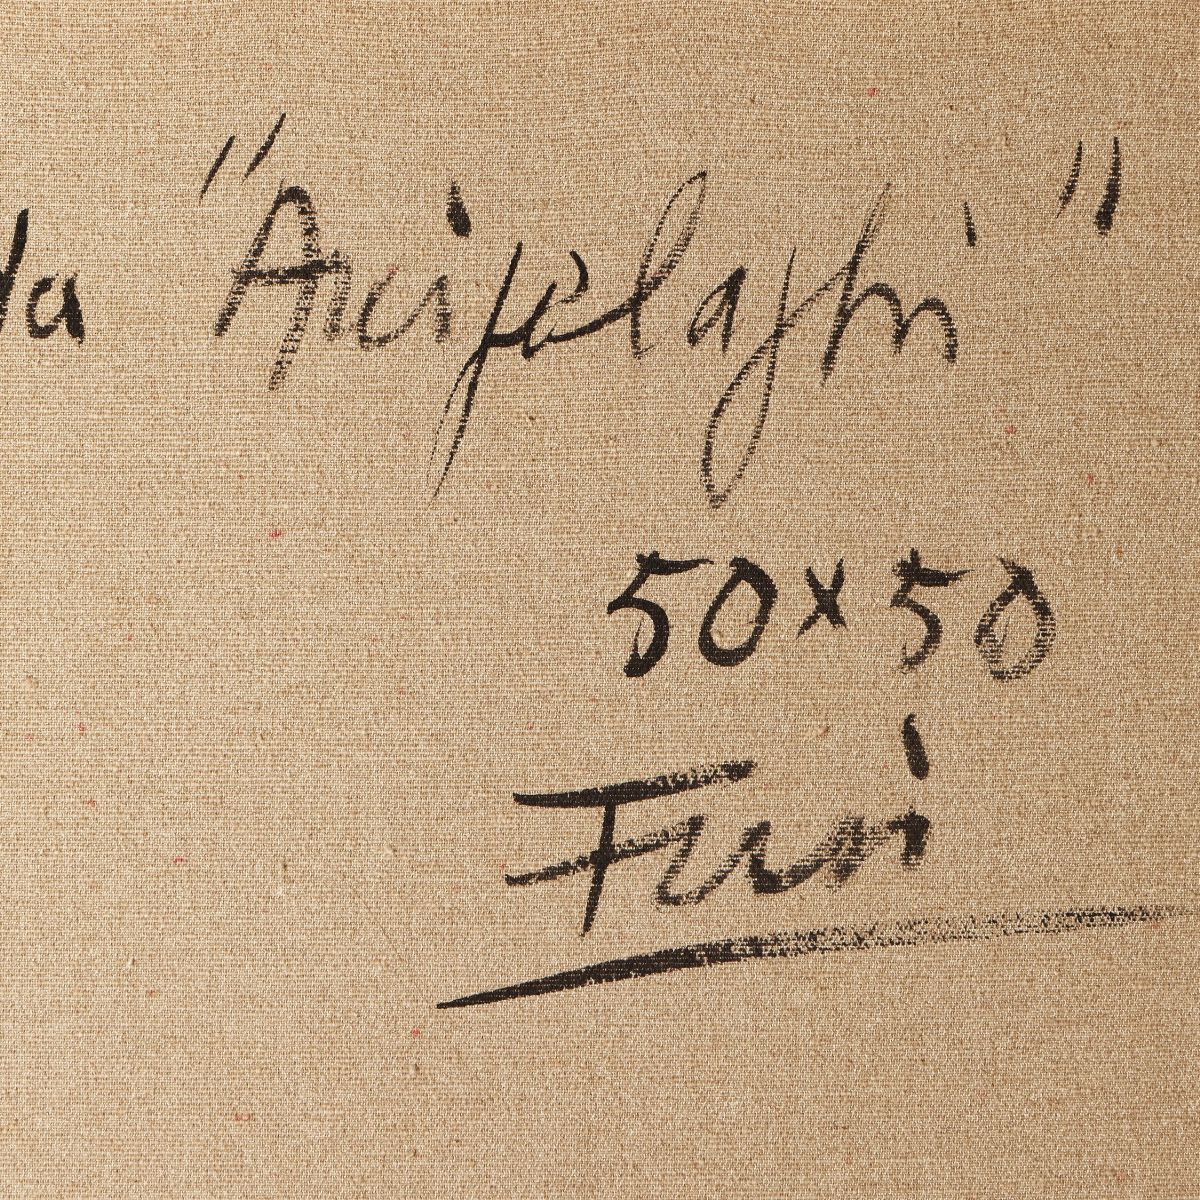 da "Arcipelaghi"
50x50
Furi